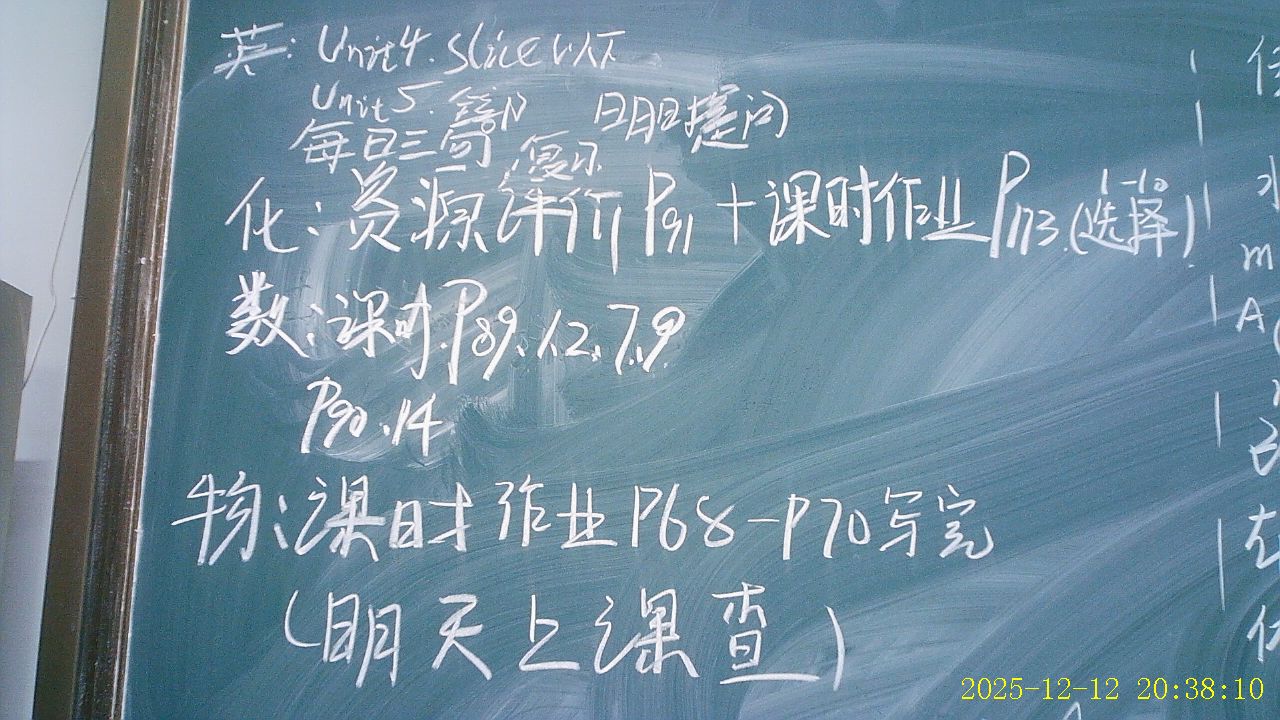 英: Unit4. slice以下
Unit 5. 明日提问
每日三句,复示
化:资源评价P91+课时作业P173.(选择) 1-10
数:课时.P89.1.2.7.9
P90.14
物:课时作业P68-P70写完
(明天上课查)
m
A
2025-12-12 20:38:10